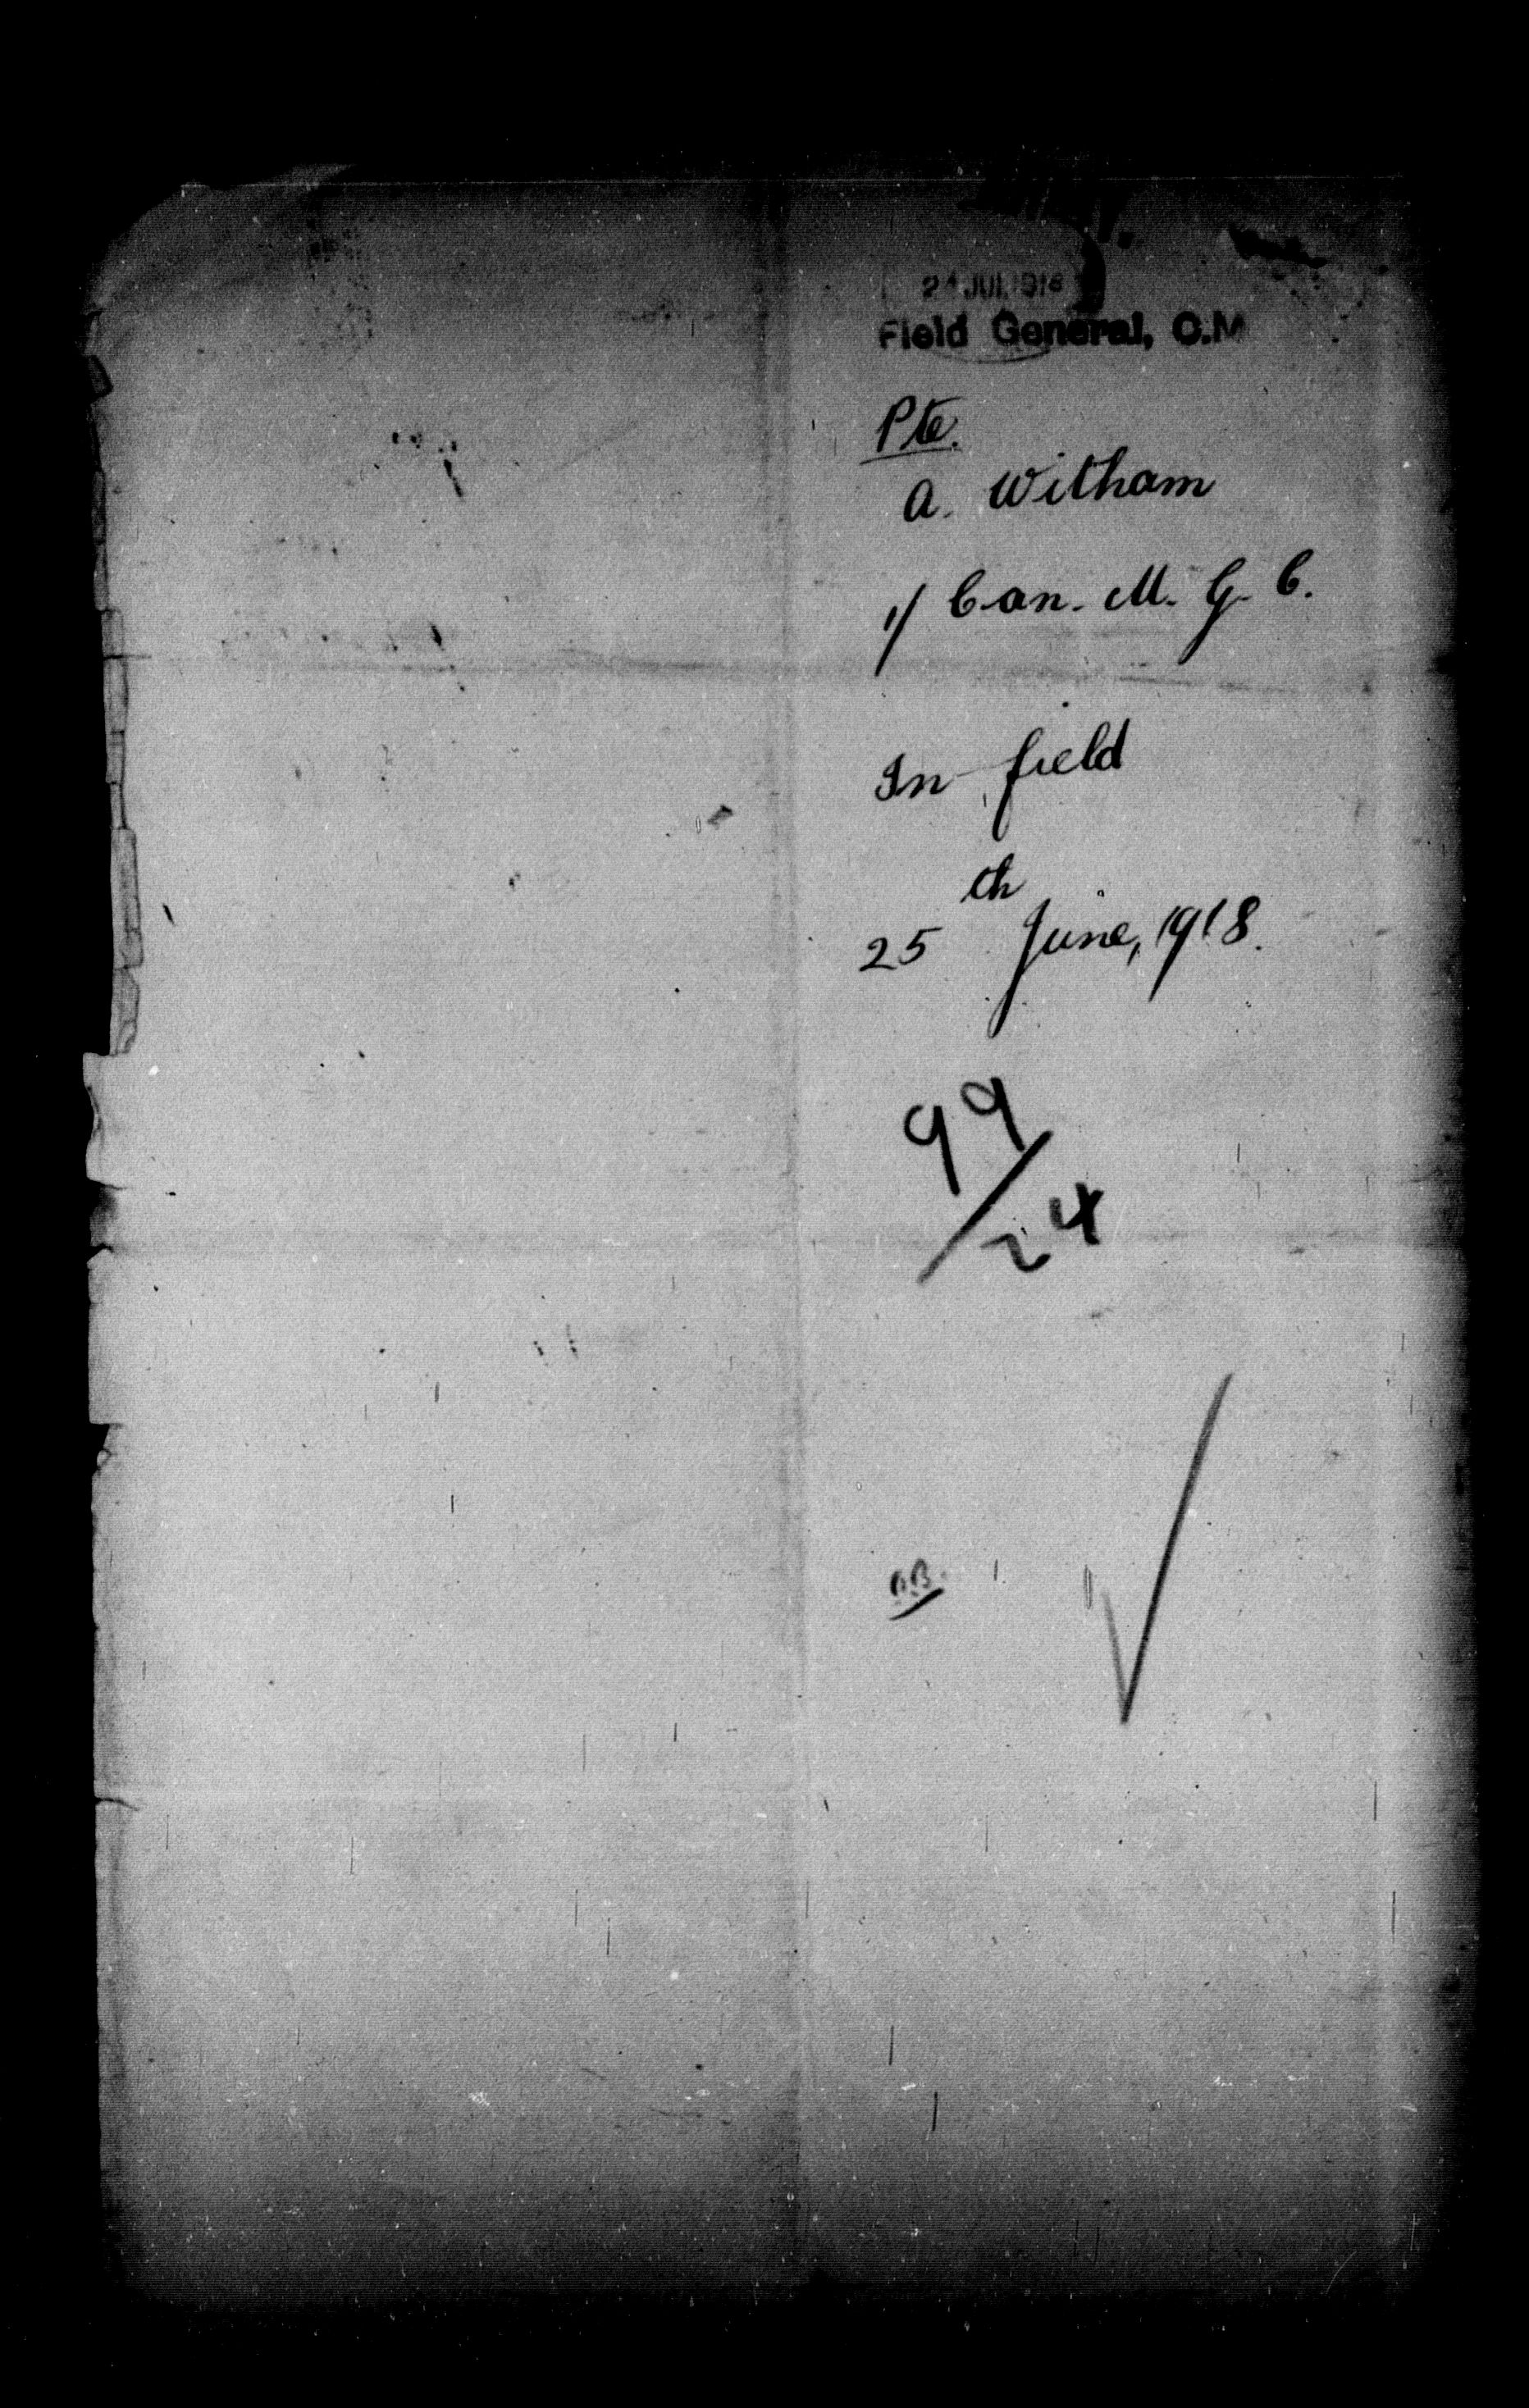 JUL 1918
Field General, C.M
Pte.
A. Witham
1/ Can. M. G. C.
In field
25th June, 1918.
99/24